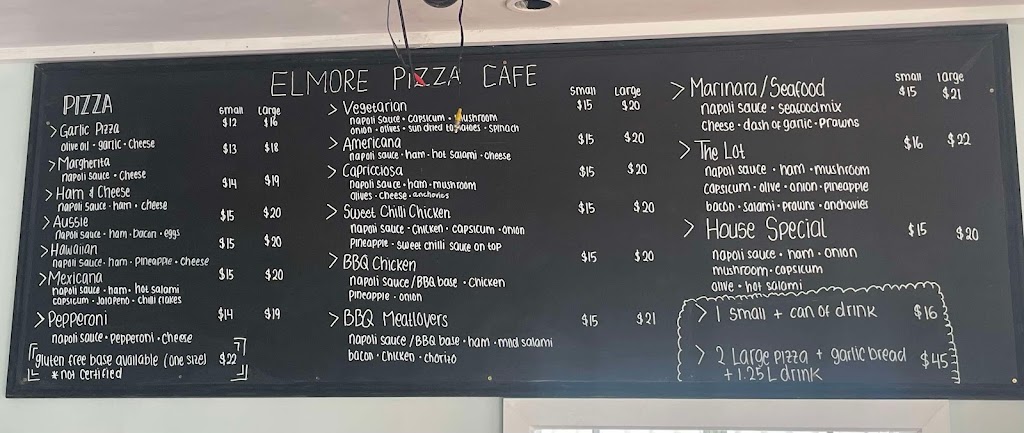 ELMORE PIZZA CAFE
PIZZA
small large
> Garlic Pizza $12 $16
olive oil - garlic - cheese
> Margherita $13 $18
napoli sauce - cheese
> Ham & Cheese $14 $19
napoli sauce - ham - cheese
> Aussie $15 $20
napoli sauce - ham - bacon - eggs
> Hawaiian $15 $20
napoli sauce - ham - Pineapple - cheese
> Mexicana $15 $20
napoli sauce - ham - hot salami
capsicum - Jalopeno - chilli flakes
> Pepperoni $14 $19
napoli sauce - pepperoni - cheese
gluten free base available (one size) $22
* not certified
small large
> Vegetarian $15 $20
napoli sauce - capsicum - mushroom
onion - olives - sun dried tomatoes - spinach
> Americana $15 $20
napoli sauce - ham - hot salami - cheese
> Capricciosa $15 $20
napoli sauce - ham - mushroom
olives - cheese - anchovies
> Sweet Chilli Chicken $15 $20
napoli sauce - chicken - capsicum - onion
Pineapple - sweet chilli sauce on top
> BBQ Chicken $15 $20
napoli sauce / BBQ base - chicken
Pineapple - onion
> BBQ Meatlovers $15 $21
napoli sauce / BBQ base - ham - mild salami
bacon - chicken - chorizo
small large
> Marinara / Seafood $15 $21
napoli sauce - seafood mix
cheese - dash of garlic - prawns
> The Lot $16 $22
napoli sauce - ham - mushroom
capsicum - olive - onion - pineapple
bacon - salami - prawns - anchovies
> House Special $15 $20
napoli sauce - ham - onion
mushroom - capsicum
olive - hot salami
> 1 small + can of drink $16
> 2 Large pizza + garlic bread $45
+ 1.25 L drink